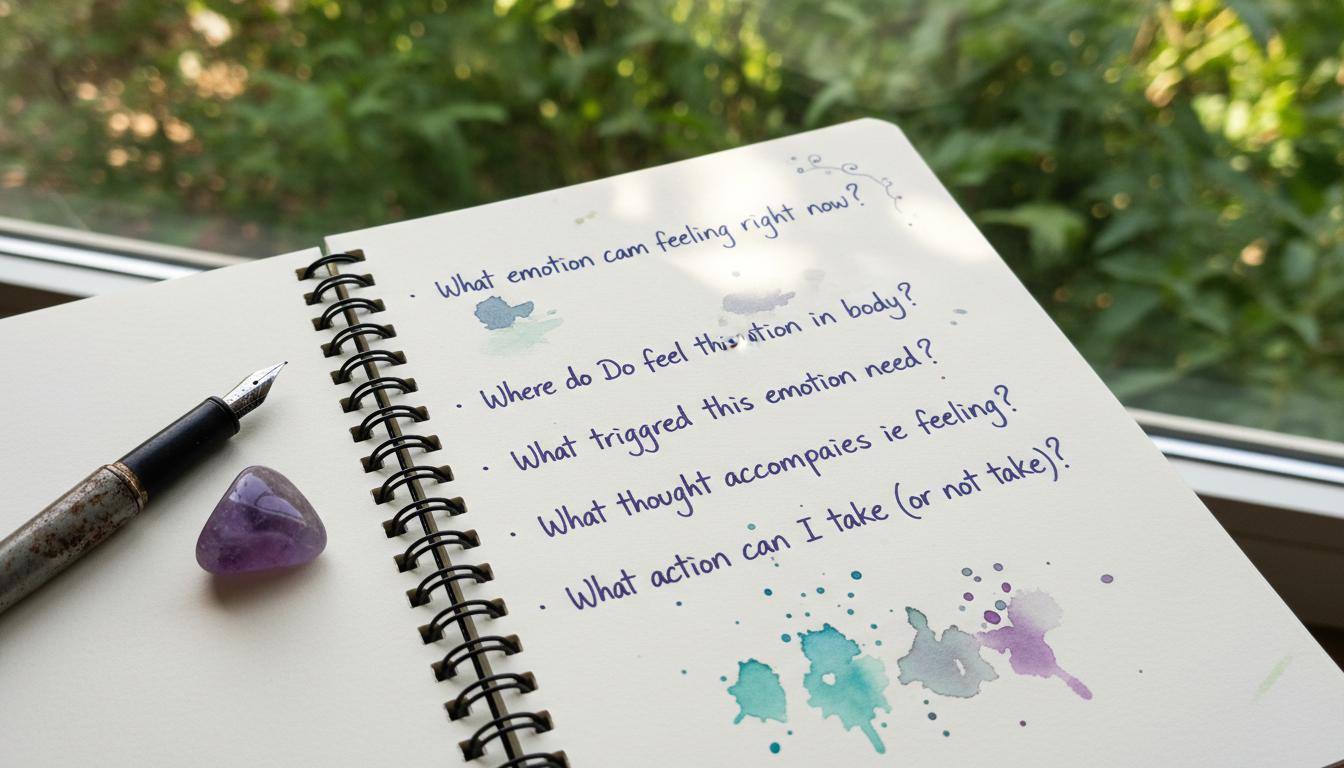 · What emotion cam feeling right now?
· Where do Do feel this otion in body?
· What triggred this emotion need?
· What thought accompaies ie feeling?
· What action can I take (or not take)?